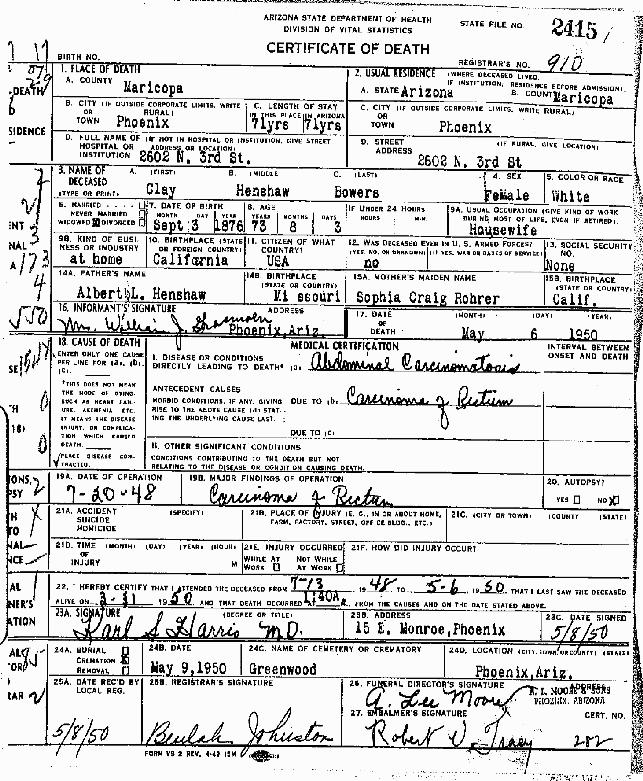 ARIZONA STATE DEPARTMENT OF HEALTH
DIVISION OF VITAL STATISTICS
STATE FILE NO. 2415
CERTIFICATE OF DEATH
BIRTH NO.
REGISTRAR'S NO. 910
1. PLACE OF DEATH
A. COUNTY Maricopa
2. USUAL RESIDENCE (WHERE DECEASED LIVED. IF INSTITUTION, RESIDENCE BEFORE ADMISSION)
A. STATE Arizona B. COUNTY Maricopa
B. CITY (IF OUTSIDE CORPORATE LIMITS, WRITE RURAL) OR TOWN Phoenix
C. LENGTH OF STAY IN THIS PLACE 71yrs IN ARIZONA 71yrs
C. CITY (IF OUTSIDE CORPORATE LIMITS, WRITE RURAL) OR TOWN Phoenix
D. FULL NAME OF (IF NOT IN HOSPITAL OR INSTITUTION, GIVE STREET ADDRESS OR LOCATION) HOSPITAL OR INSTITUTION 2602 N. 3rd St.
D. STREET ADDRESS (IF RURAL, GIVE LOCATION) 2602 N. 3rd St
3. NAME OF DECEASED (TYPE OR PRINT) A. (FIRST) Clay B. (MIDDLE) Henshaw C. (LAST) Bowers
4. SEX Female
5. COLOR OR RACE White
6. MARRIED NEVER MARRIED WIDOWED DIVORCED
7. DATE OF BIRTH MONTH DAY YEAR Sept 3 1876
8. AGE YEARS MONTHS DAYS 73 8 3
IF UNDER 24 HOURS HOURS MIN.
9A. USUAL OCCUPATION (GIVE KIND OF WORK DURING MOST OF LIFE, EVEN IF RETIRED) Housewife
9B. KIND OF BUSINESS OR INDUSTRY at home
10. BIRTHPLACE (STATE OR FOREIGN COUNTRY) California
11. CITIZEN OF WHAT COUNTRY? USA
12. WAS DECEASED EVER IN U. S. ARMED FORCES? (YES, NO, OR UNKNOWN) (IF YES, WAR OR DATES OF SERVICE) no
13. SOCIAL SECURITY NO. None
14A. FATHER'S NAME Albert L. Henshaw
14B. BIRTHPLACE (STATE OR COUNTRY) Missouri
15A. MOTHER'S MAIDEN NAME Sophia Craig Rohrer
15B. BIRTHPLACE (STATE OR COUNTRY) Calif.
16. INFORMANT'S SIGNATURE Mrs. William J. ADDRESS Phoenix, Ariz.
17. DATE OF DEATH (MONTH) (DAY) (YEAR) May 6 1950
18. CAUSE OF DEATH
ENTER ONLY ONE CAUSE PER LINE FOR (A), (B), (C).
MEDICAL CERTIFICATION
INTERVAL BETWEEN ONSET AND DEATH
I. DISEASE OR CONDITIONS DIRECTLY LEADING TO DEATH* (A) Abdominal Carcinomatosis
*THIS DOES NOT MEAN THE MODE OF DYING, SUCH AS HEART FAILURE, ASTHENIA, ETC. IT MEANS THE DISEASE, INJURY, OR COMPLICATION WHICH CAUSED DEATH.
ANTECEDENT CAUSES
MORBID CONDITIONS, IF ANY, GIVING RISE TO THE ABOVE CAUSE (A) STATING THE UNDERLYING CAUSE LAST.
DUE TO (B) Carcinoma of Rectum
DUE TO (C)
PLACE DISEASE CONTRACTED.
II. OTHER SIGNIFICANT CONDITIONS
CONDITIONS CONTRIBUTING TO THE DEATH BUT NOT RELATING TO THE DISEASE OR CONDITION CAUSING DEATH.
19A. DATE OF OPERATION 7-20-48
19B. MAJOR FINDINGS OF OPERATION Carcinoma of Rectum
20. AUTOPSY? YES NO X
21A. ACCIDENT SUICIDE HOMICIDE (SPECIFY)
21B. PLACE OF INJURY (E. G., IN OR ABOUT HOME, FARM, FACTORY, STREET, OFFICE BLDG., ETC.)
21C. (CITY OR TOWN) (COUNTY) (STATE)
21D. TIME (MONTH) (DAY) (YEAR) (HOUR) OF INJURY M
21E. INJURY OCCURRED WHILE AT WORK NOT WHILE AT WORK
21F. HOW DID INJURY OCCUR?
22. I HEREBY CERTIFY THAT I ATTENDED THE DECEASED FROM 7-13 1948 TO 5-6 1950, THAT I LAST SAW THE DECEASED
ALIVE ON 3-31 1950 AND THAT DEATH OCCURRED 1:40A. FROM THE CAUSES AND ON THE DATE STATED ABOVE.
23A. SIGNATURE (DEGREE OR TITLE) Karl S Harris M.D.
23B. ADDRESS 15 E. Monroe, Phoenix
23C. DATE SIGNED 5/8/50
24A. BURIAL CREMATION REMOVAL
24B. DATE May 9,1950
24C. NAME OF CEMETERY OR CREMATORY Greenwood
24D. LOCATION (CITY, TOWN, COUNTY) (STATE) Phoenix, Ariz.
25A. DATE REC'D BY LOCAL REG. 5/8/50
25B. REGISTRAR'S SIGNATURE Beulah Johnston
26. FUNERAL DIRECTOR'S SIGNATURE ADDRESS A. Lee Moore
A. L. MOORE & SONS PHOENIX, ARIZONA
27. EMBALMER'S SIGNATURE CERT. NO. Robert V. Tracy 202
FORM VS 2 REV. 4-49 15M